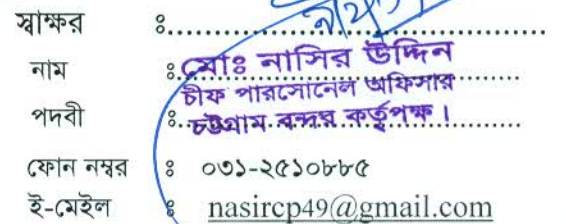 স্বাক্ষর ঃ
নাম ঃ মোঃ নাসির উদ্দিন
চীফ পারসোনেল অফিসার
পদবী ঃ চট্টগ্রাম বন্দর কর্তৃপক্ষ।
ফোন নম্বর ঃ ০৩১-২৫১০৮৮৫
ই-মেইল ঃ nasircp49@gmail.com